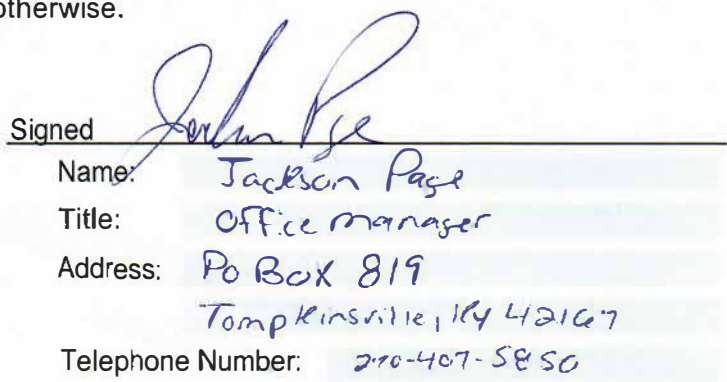 otherwise.
Signed
Name: Jackson Page
Title: Office manager
Address: Po Box 819
Tompkinsville, Ky 42167
Telephone Number: 270-407-5850